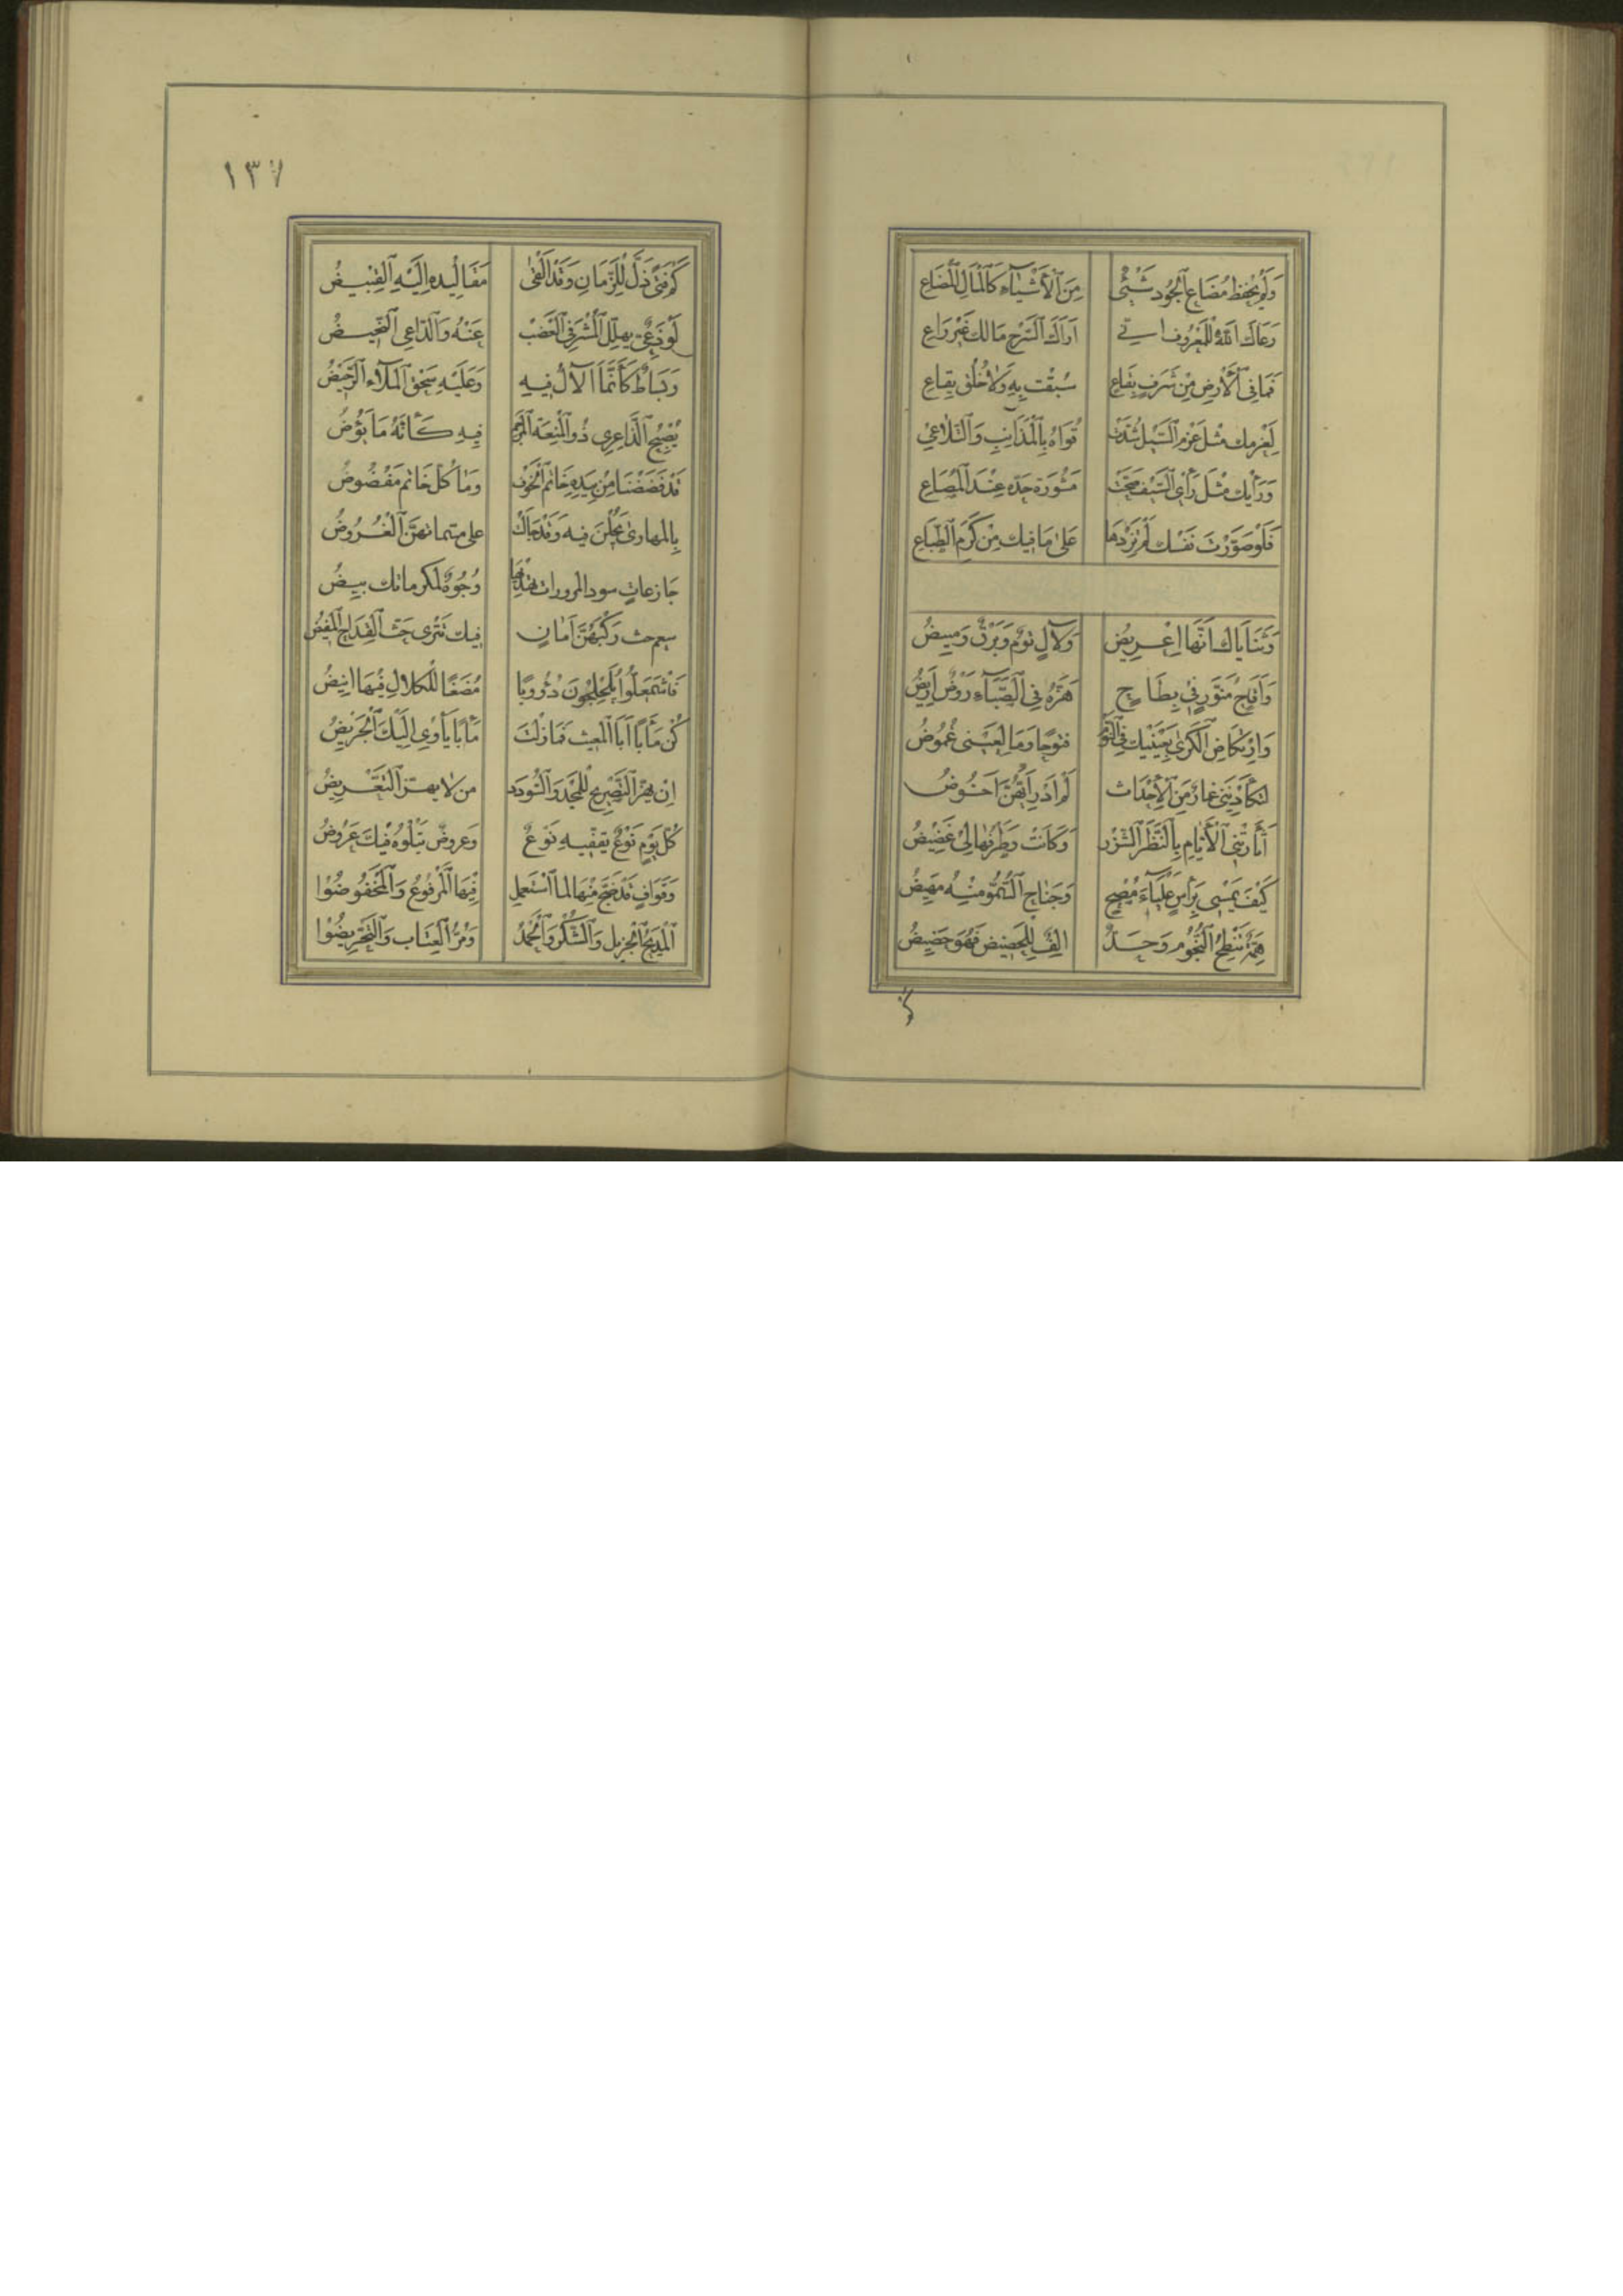 وَلَمْ يُحْفَظْ مُضَاعُ الْجُودِ شَيْءٌ مِنَ الْأَشْيَاءِ كَالْمَالِ الْمُضَاعِ
رَعَاكَ اللّٰهُ لِلْمَعْرُوفِ اني اَرَاكَ السَّرْحِ مَا لَكَ غَيْرَ رَاعِ
فَمَا فِي الْأَرْضِ مِنْ شَرَفٍ يَفَاعٍ سُبِقْتَ بِهِ وَلَا خُلُقٍ يَفَاعِ
لَعَزْمِكَ مِثْلُ عَزْمِ السَّيْلِ شُدَّتْ قُوَاهُ بِالْمَذَانِبِ وَالتَّلَاعِي
وَرَأْيِكَ مِثْلُ رَأْيِ السَّيْفِ صَحَّتْ مَشُورَة حَدِّه عِنْدَ الْمَصَاعِ
فَلَوْ صَوَّرْتَ نَفْسَكَ لَمْ تَزِدْهَا عَلَى مَا فِيكَ مِنْ كَرَمِ الطِّبَاعِ
وَثَنَايَاكَ اَنَّهَا اِغْرِيضُ وَلآلٍ تُومٌ وَبَرْقٌ وَمِيضُ
وَأَقَاحٍ مُنَوَّرٍ فِي بِطَاحٍ هَزَّهُ فِي الصَّبَآءِ رَوْضٌ اَرِيضُ
وَارْتِكَاضِ الْكَرَى بِعَيْنَيْكَ فِي النَّوْمِ فُنُونًا وَمَا لِعَيْنِي غُمُوضُ
لتكَأَّدْنَنِي غمارٌ مِنَ الْأَحْدَاث لَمْ اَدْرِ اَيَّهُنَّ اَخُوضُ
أَتْأَرَتْنِي الْأَيَّامُ بِالنَّظَرِ الشَّزْرِ وَكَانَتْ وَطَرْفُهَا لِي غَضِيضُ
كَيْفَ يُمْسِي بِرَأْسِ عَلْيَآءَ مُضْحٍ وَجَنَاحُ السُّمُوِّ مِنْهُ مَهِيضُ
هِمَّةٌ تَنْطِحُ النُّجُومَ وَجَدٌّ الِفٌ لِلْحَضِيضِ فَهُوَ حَضِيضُ
كم
١٣٧
كَمْ فَتًى ذَلَّ لِلزَّمَانِ وَقَدْ اَلْقَى مَقَالِيدَه اِلَيْهِ الْقَبِيضُ
لَوْذَعِيٌّ يهلّل الْمَشْرَفِيّ الْعَضْبُ عَنْهُ وَالدَّاعِي النَّحِيضُ
وَبَسَاطٌ كَأَنَّمَا الْآلُ فِيهِ وَعَلَيْهِ سَحْقُ الْمُلَآءِ الرَّحِيضُ
يُصْبِحُ الدَّاعِرِي ذُو الْمَيْعَة الْمرجم فِيهِ كَأَنَّهُ مَأْبُوضُ
قَدْ فَضَضْنَا مِنْ بِيدِهِ خَاتَمَ الْخَوْفِ وَمَا كُلُّ خَاتَمٍ مَفْضُوضُ
بِالْمهارى يَجُلْنَ فِيهِ وَقَدْ جَالَتْ عَلَى مسماتهنَّ الْغُرُوضُ
جَازعَاتٍ سود المرورات تهديها وُجُوهٌ لمكرماتك بِيضُ
سعم حث رَكْبَهُنَّ اَمَانٍ فِيكَ تَتْرَى حَثَّ الْقِدَاحَ الْمُفِيضُ
فَاشْمَعَلُّوا يُلَجْلِجُونَ دؤُوبًا مُضَغًا لِلْكَلَالِ فِيهَا انِيضُ
كُنْ مَآبًا اَبَا الْمغيث فَمَا زِلْتَ مَآبًا يَأْوِي اِلَيْكَ الْجَرِيضُ
اِنْ يَهُزَّ التَّصْرِيحُ لِلْمَجْدِ وَالسُّودَد من لَا يهزّ التَّعْرِيضُ
كُلَّ يَوْمٍ نَوْعٌ يُقَفِّيهِ نَوْعٌ وعروضٌ يَتْلُوهُ فِيكَ عَرُوضُ
وَقَوَافٍ قَدْ ضَجَّ مِنْهَا لما اسْتُعْمِلَ فِيهَا الْمَرْفُوعُ وَالْمَخْفُوضُوا
الْمَدِيحُ الْجَزِيل وَالشُّكْرُ وَالْحَمْدُ وَمُرُّ الْعِتَابِ وَالتَّحْرِيضُوا